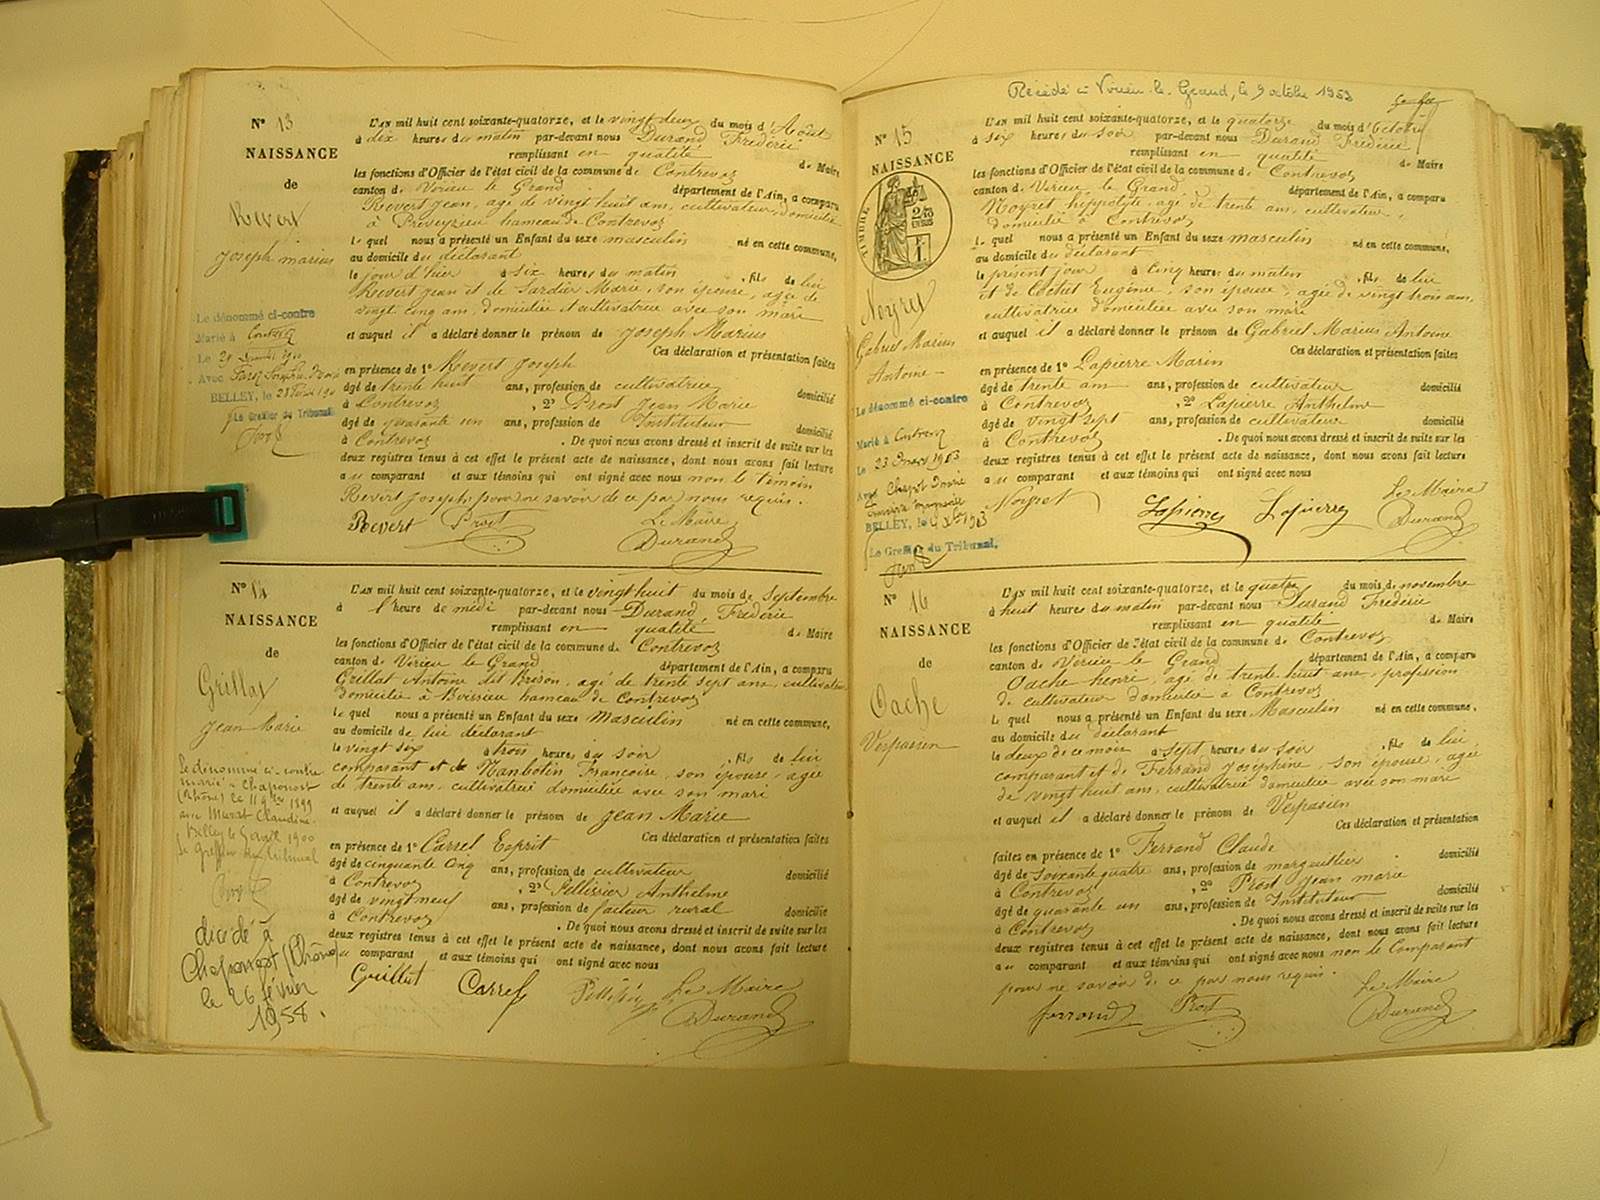 Nº 13
NAISSANCE
de
Revert
Joseph marius
Le dénommé ci-contre
Marié à Contrevoz
Le
Avec
BELLEY, le
Le Greffier du Tribunal
L'AN mil huit cent soixante-quatorze, et le vingt deux du mois d'Août
à dix heures du matin par-devant nous Durand Frédéric
remplissant en qualité de Maire
les fonctions d'Officier de l'état civil de la commune de Contrevoz
canton de Virieu le Grand département de l'Ain, a comparu
Revert Jean, agé de vingt huit ans, cultivateur, domicilié
à Preveyzieu hameau de Contrevoz
lequel nous a présenté un Enfant du sexe masculin né en cette commune,
au domicile du déclarant
le jour d'hier à six heures du matin, fils de lui
Revert Jean et de Sardier Marie, son épouse, agée de
vingt cinq ans, domiciliée et cultivatrice avec son mari
et auquel il a déclaré donner le prénom de Joseph Marius
Ces déclaration et présentation faites
en présence de 1º Revert Joseph
âgé de trente huit ans, profession de cultivateur domicilié
à Contrevoz, 2º Prost Jean Marie
âgé de quarante un ans, profession de Instituteur domicilié
à Contrevoz. De quoi nous avons dressé et inscrit de suite sur les
deux registres tenus à cet effet le présent acte de naissance, dont nous avons fait lecture
au comparant et aux témoins qui ont signé avec nous non le témoin
Revert Joseph pour ne savoir de ce par nous requis.
Revert Prost Le Maire
Durand
Nº 14
NAISSANCE
de
Grillat
Jean Marie
Le dénommé ci-contre
marié à Chaponost
(Rhône) le 11 9bre 1899
avec Murat Claudine.
Belley le 5 avril 1900
Le Greffier du Tribunal
décédé à
Chaponost (Rhône)
le 26 février
1958.
L'AN mil huit cent soixante-quatorze, et le vingt huit du mois de Septembre
à l'heure de midi par-devant nous Durand, Frédéric
remplissant en qualité de Maire
les fonctions d'Officier de l'état civil de la commune de Contrevoz
canton de Virieu le Grand département de l'Ain, a comparu
Grillat Antoine dit Brison, agé de trente sept ans, cultivateur
domicilié à Boissieu hameau de Contrevoz
lequel nous a présenté un Enfant du sexe Masculin né en cette commune,
au domicile de lui déclarant
le vingt six à trois heures du soir, fils de lui
comparant et de Nambotin Françoise, son épouse, agée
de trente ans, cultivatrice domiciliée avec son mari
et auquel il a déclaré donner le prénom de Jean Marie
Ces déclaration et présentation faites
en présence de 1º Carrel Esprit
âgé de cinquante cinq ans, profession de cultivateur domicilié
à Contrevoz, 2º Pellissier Anthelme
âgé de vingt neuf ans, profession de facteur rural domicilié
à Contrevoz. De quoi nous avons dressé et inscrit de suite sur les
deux registres tenus à cet effet le présent acte de naissance, dont nous avons fait lecture
au comparant et aux témoins qui ont signé avec nous
Grillat Carrel Le Maire
Durand
Décédé à Virieu-le-Grand, le 9 octobre 1953
Nº 15
NAISSANCE
TIMBRE
Noyret
Gabriel Marius
Antoine
Le dénommé ci-contre
Marié à Contrevoz
Le 23 1903
Avec Chapot Marie
BELLEY, le
Le Greffier du Tribunal,
L'AN mil huit cent soixante-quatorze, et le quatorze du mois d'Octobre
à six heures du soir par-devant nous Durand Frédéric
remplissant en qualité de Maire
les fonctions d'Officier de l'état civil de la commune de Contrevoz
canton de Virieu le Grand département de l'Ain, a comparu
Noyret hippolyte, agé de trente ans, cultivateur,
domicilié à Contrevoz
lequel nous a présenté un Enfant du sexe masculin né en cette commune,
au domicile du déclarant
le présent jour à cinq heures du matin, fils de lui
et de Cochet Eugénie, son épouse, agée de vingt trois ans,
cultivatrice domiciliée avec son mari
et auquel il a déclaré donner le prénom de Gabriel Marius Antoine
Ces déclaration et présentation faites
en présence de 1º Lapierre Marin
âgé de trente ans ans, profession de cultivateur domicilié
à Contrevoz, 2º Lapierre Anthelme
âgé de vingt sept ans, profession de cultivateur domicilié
à Contrevoz. De quoi nous avons dressé et inscrit de suite sur les
deux registres tenus à cet effet le présent acte de naissance, dont nous avons fait lecture
au comparant et aux témoins qui ont signé avec nous
Noyret Lapierre Lapierre Le Maire
Durand
Nº 16
NAISSANCE
de
Oache
Vespasien
L'AN mil huit cent soixante-quatorze, et le quatre du mois de novembre
à huit heures du matin par-devant nous Durand Frédéric
remplissant en qualité de Maire
les fonctions d'Officier de l'état civil de la commune de Contrevoz
canton de Virieu le Grand département de l'Ain, a comparu
Oache henri, agé de trente huit ans, profession
de cultivateur domicilié à Contrevoz
lequel nous a présenté un Enfant du sexe Masculin né en cette commune,
au domicile du déclarant
le deux de ce mois à sept heures du soir, fils de lui
comparant et de Ferrand Joséphine, son épouse, agée
de vingt huit ans, cultivatrice domiciliée avec son mari
et auquel il a déclaré donner le prénom de Vespasien
Ces déclaration et présentation
faites en présence de 1º Ferrand Claude
âgé de soixante quatre ans, profession de marguillier domicilié
à Contrevoz, 2º Prost Jean marie
âgé de quarante un ans, profession de Instituteur domicilié
à Contrevoz. De quoi nous avons dressé et inscrit de suite sur les
deux registres tenus à cet effet le présent acte de naissance, dont nous avons fait lecture
au comparant et aux témoins qui ont signé avec nous non le Comparant
pour ne savoir de ce par nous requis.
ferrand Prost Le Maire
Durand